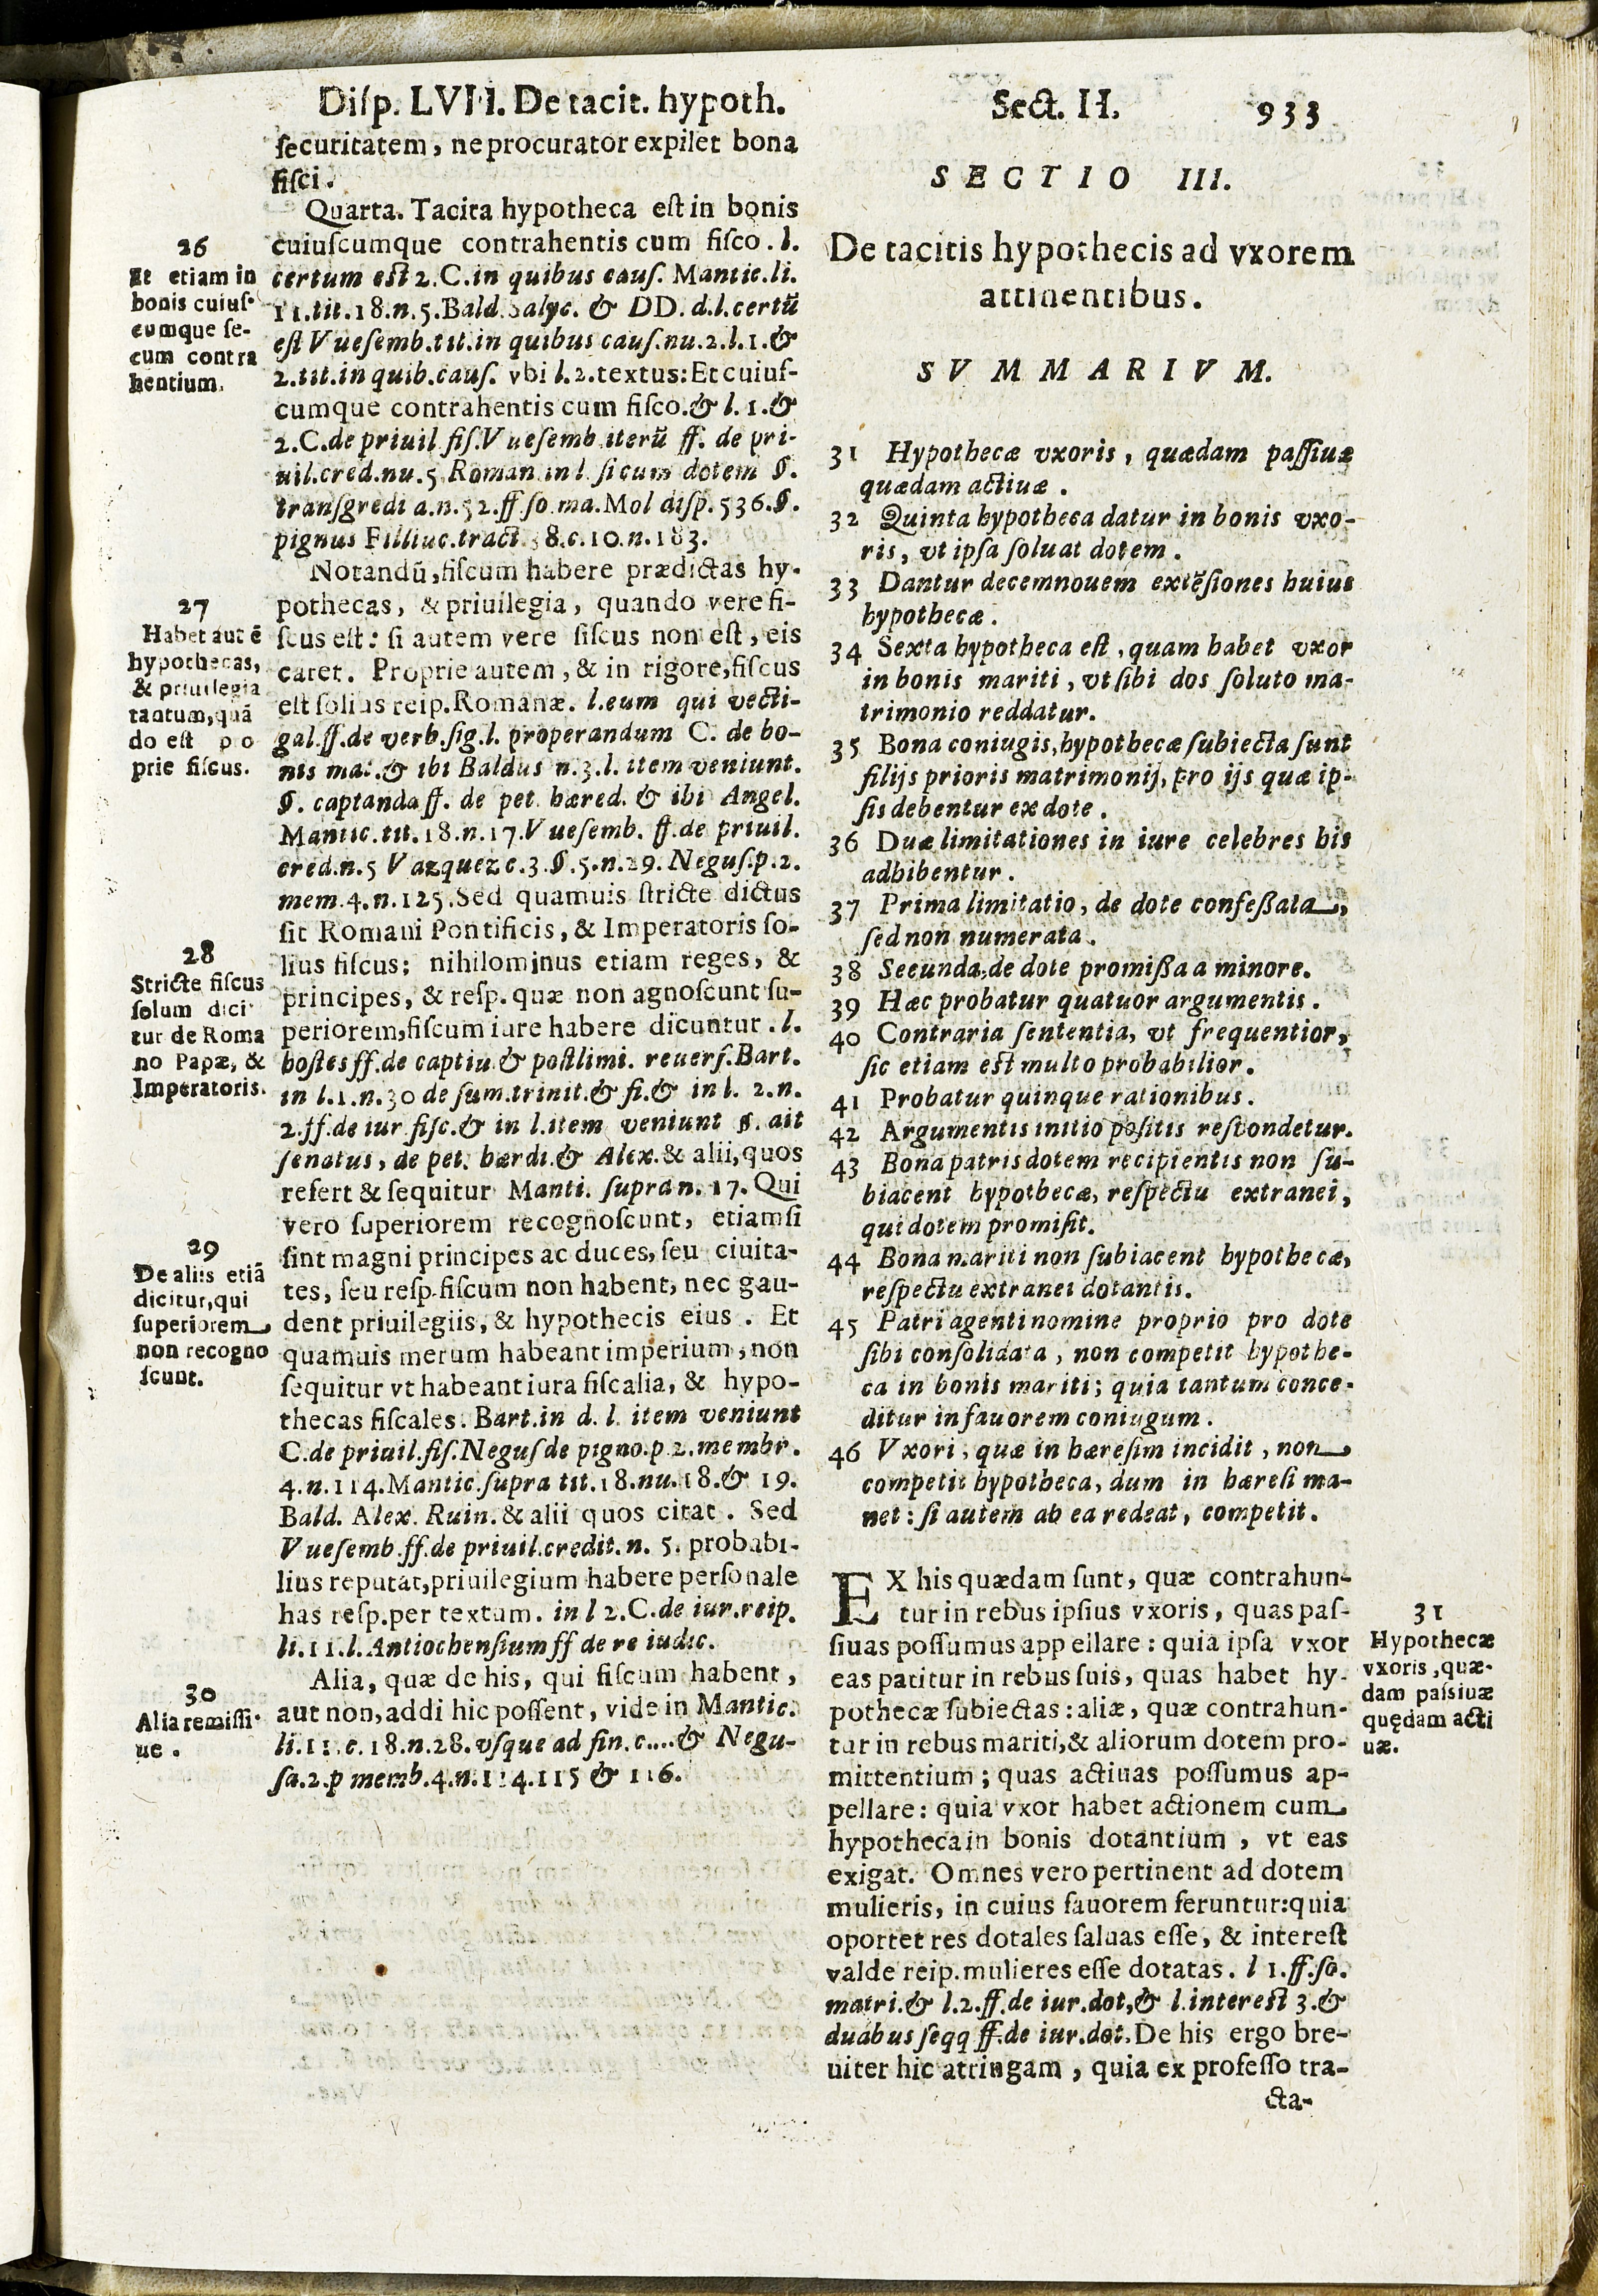 Diſp. LVII. De tacit. hypoth. Sect. II. 933
ſecuritatem, ne procurator expilet bona
fiſci.
Quarta. Tacita hypotheca eſt in bonis
cuiuſcumque contrahentis cum fiſco. l.
certum eſt 2. C. in quibus cauſ. Mantic. li.
11. tit. 18. n. 5. Bald. Salyc. & DD. d. l. certũ
eſt Vueſemb. tit. in quibus cauſ. nu. 2. l. 1. &
2. tit. in quib. cauſ. vbi l. 2. textus: Et cuiuſ-
cumque contrahentis cum fiſco. & l. 1. &
2. C. de priuil. fiſ. Vueſemb iterũ ff. de pri-
uil. cred. nu. 5 Roman in l. ſi cum dotem §.
tranſgredi a. n. 52. ff ſo. ma. Mol diſp. 536. §.
pignus Filliuc. tract. 38. c. 10. n. 183.
Notandũ, fiſcum habere prædictas hy-
pothecas, & priuilegia, quando vere fi-
ſcus eſt: ſi autem vere fiſcus non eſt, eis
caret. Proprie autem, & in rigore, fiſcus
eſt ſolius reip. Romanæ. l. eum qui vecti-
gal. ff. de verb. ſig. l. properandum C. de bo-
nis mat. & ibi Baldus n. 3. l. item veniunt.
§. captanda ff. de pet. hæred. & ibi Angel.
Mantic. tit. 18. n. 17. Vueſemb. ff. de priuil.
cred. n. 5 Vazquez c. 3. §. 5. n. 29. Neguſ. p. 2.
mem. 4. n. 125. Sed quamuis ſtricte dictus
ſit Romani Pontificis, & Imperatoris ſo-
lius fiſcus; nihilominus etiam reges, &
principes, & reſp. quæ non agnoſcunt ſu-
periorem, fiſcum iure habere dicuntur. l.
hoſtes ff. de captiu. & poſtlimi. reuerſ. Bart.
in l. 1. n. 30 de ſum. trinit. & fi. & in l. 2. n.
2. ff. de iur fiſc. & in l. item veniunt §. ait
ſenatus, de pet. hærdi. & Alex. & alii, quos
refert & ſequitur Manti. ſupra n. 17. Qui
vero ſuperiorem recognoſcunt, etiamſi
ſint magni principes ac duces, ſeu ciuita-
tes, ſeu reſp. fiſcum non habent, nec gau-
dent priuilegiis, & hypothecis eius. Et
quamuis merum habeant imperium, non
ſequitur vt habeant iura fiſcalia, & hypo-
thecas fiſcales. Bart. in d. l. item veniunt
C. de priuil. fiſ. Neguſ de pigno. p 2. membr.
4. n. 114. Mantic. ſupra tit. 18. nu. 18. & 19.
Bald. Alex. Ruin. & alii quos citat. Sed
Vueſemb. ff. de priuil. credit. n. 5. probabi-
lius reputat, priuilegium habere perſonale
has reſp. per textum. in l 2. C. de iur. reip.
li. 11. l. Antiochenſium ff de re iudic.
Alia, quæ de his, qui fiſcum habent,
aut non, addi hic poſſent, vide in Mantic.
li. 11. c. 18. n. 28. vſque ad fin. c.... & Negu-
ſa. 2. p memb. 4. n. 114. 115 & 116.
26
Et etiam in
bonis cuiuſ-
cumque ſe-
cum contra
hentium.
27
Habet autē
hypothecas,
& priuilegia
tantum, quã
do eſt pro
prie fiſcus.
28
Stricte fiſcus
ſolum dici
tur de Roma
no Papæ, &
Imperatoris.
29
De aliis etiã
dicitur, qui
ſuperiorem
non recogno
ſcunt.
30
Alia remiſſi-
ue.
SECTIO III.
De tacitis hypothecis ad vxorem
attinentibus.
SVMMARIVM.
31 Hypothecæ vxoris, quædam paſſiuæ
quædam actiuæ.
32 Quinta hypotheca datur in bonis vxo-
ris, vt ipſa ſoluat dotem.
33 Dantur decemnouem extēſiones huius
hypothecæ.
34 Sexta hypotheca eſt, quam habet vxor
in bonis mariti, vt ſibi dos ſoluto ma-
trimonio reddatur.
35 Bona coniugis, hypothecæ ſubiecta ſunt
filijs prioris matrimonij, pro ijs quæ ip-
ſis debentur ex dote.
36 Duæ limitationes in iure celebres his
adhibentur.
37 Prima limitatio, de dote confeßata,
ſed non numerata.
38 Secunda, de dote promißa a minore.
39 Hæc probatur quatuor argumentis.
40 Contraria ſententia, vt frequentior,
ſic etiam eſt multo probabilior.
41 Probatur quinque rationibus.
42 Argumentis initio poſitis reſpondetur.
43 Bona patris dotem recipientis non ſu-
biacent hypothecæ, reſpectu extranei,
qui dotem promiſit.
44 Bona mariti non ſubiacent hypothecæ,
reſpectu extranei dotantis.
45 Patri agenti nomine proprio pro dote
ſibi conſolidata, non competit hypothe-
ca in bonis mariti; quia tantum conce-
ditur in fauorem coniugum.
46 Vxori, quæ in hæreſim incidit, non
competit hypotheca, dum in hæreſi ma-
net: ſi autem ab ea redeat, competit.
EX his quædam ſunt, quæ contrahun-
tur in rebus ipſius vxoris, quas paſ-
ſiuas poſſumus appellare: quia ipſa vxor
eas patitur in rebus ſuis, quas habet hy-
pothecæ ſubiectas: aliæ, quæ contrahun-
tur in rebus mariti, & aliorum dotem pro-
mittentium; quas actiuas poſſumus ap-
pellare: quia vxor habet actionem cum
hypotheca in bonis dotantium, vt eas
exigat. Omnes vero pertinent ad dotem
mulieris, in cuius fauorem feruntur: quia
oportet res dotales ſaluas eſſe, & intereſt
valde reip. mulieres eſſe dotatas. l 1. ff. ſo.
matri. & l. 2. ff. de iur. dot, & l. intereſt 3. &
duabus ſeqq ff. de iur. dot. De his ergo bre-
uiter hic attingam, quia ex profeſſo tra-
cta-
31
Hypothecæ
vxoris, quæ-
dam paſsiuæ
quędam acti
uæ.